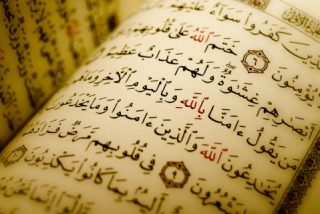 ذِينَ كَفَرُوا۟ سَوَآءٌ عَلَيْهِمْ
يُؤْمِنُونَ ٦ خَتَمَ ٱللَّهُ عَلَىٰ قُلُوبِهِمْ
أَبْصَٰرِهِمْ غِشَٰوَةٌ وَلَهُمْ عَذَابٌ عَظِيمٌ
مَن يَقُولُ ءَامَنَّا بِٱللَّهِ وَبِٱلْيَوْمِ ٱلْـَٔاخِرِ وَمَا
يُخَٰدِعُونَ ٱللَّهَ وَٱلَّذِينَ ءَامَنُوا۟ وَمَا يَخْدَعُونَ
يَشْعُرُونَ ٩ فِى قُلُوبِهِم مَّرَضٌ فَزَادَ
أَلِيمٌۢ بِمَا كَانُوا۟ يَكْذِبُونَ